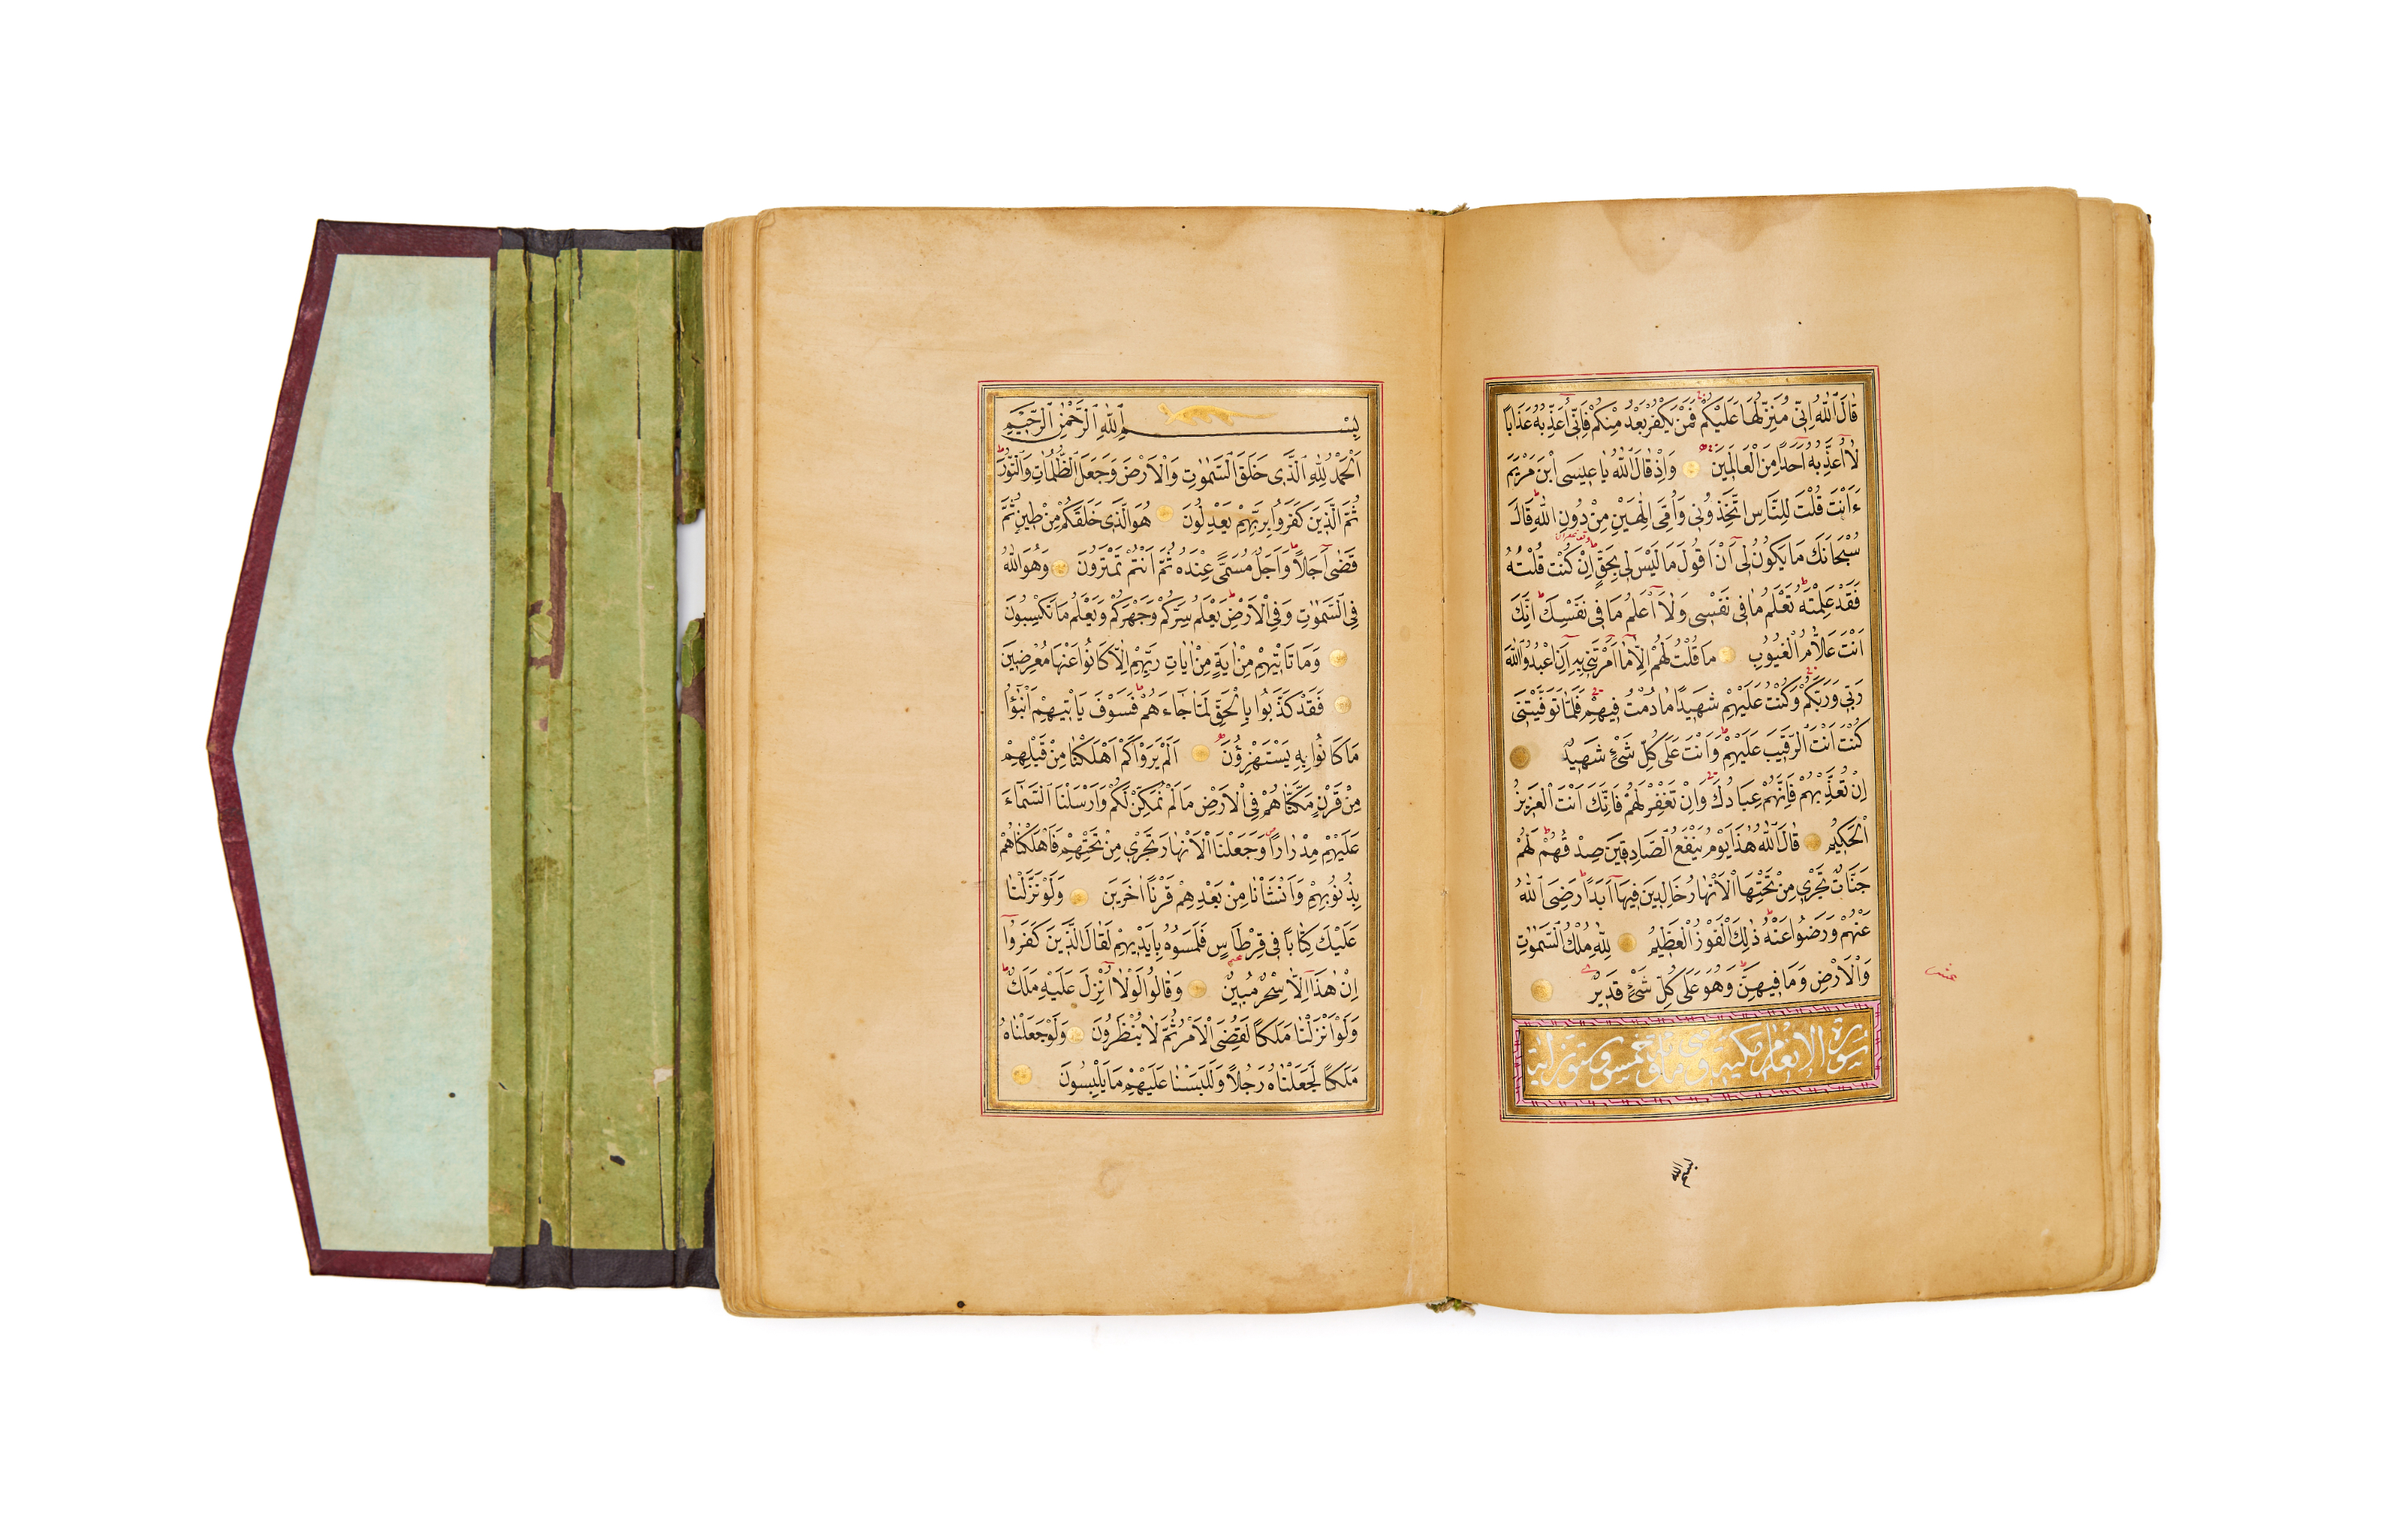 قَالَ اللّٰهُ اِنّٖى مُنَزِّلُهَا عَلَيْكُمْ فَمَنْ يَكْفُرْ بَعْدُ مِنْكُمْ فَاِنّٖٓى اُعَذِّبُهُ عَذَابًا
لَٓا اُعَذِّبُهُٓ اَحَدًا مِنَ الْعَالَمٖينَ وَاِذْ قَالَ اللّٰهُ يَا عٖيسَى ابْنَ مَرْيَمَ
ءَاَنْتَ قُلْتَ لِلنَّاسِ اتَّخِذُونٖى وَاُمِّىَ اِلٰهَيْنِ مِنْ دُونِ اللّٰهِ قَالَ
سُبْحَانَكَ مَا يَكُونُ لٖٓى اَنْ اَقُولَ مَا لَيْسَ لٖى بِحَقٍّ اِنْ كُنْتُ قُلْتُهُ
فَقَدْ عَلِمْتَهُ تَعْلَمُ مَا فٖى نَفْسٖى وَلَٓا اَعْلَمُ مَا فٖى نَفْسِكَ اِنَّكَ
اَنْتَ عَلَّامُ الْغُيُوبِ مَا قُلْتُ لَهُمْ اِلَّا مَٓا اَمَرْتَنٖى بِهٖٓ اَنِ اعْبُدُوا اللّٰهَ
رَبّٖى وَرَبَّكُمْ وَكُنْتُ عَلَيْهِمْ شَهٖيدًا مَا دُمْتُ فٖيهِمْ فَلَمَّا تَوَفَّيْتَنٖى
كُنْتَ اَنْتَ الرَّقٖيبَ عَلَيْهِمْ وَاَنْتَ عَلٰى كُلِّ شَىْءٍ شَهٖيدٌ
اِنْ تُعَذِّبْهُمْ فَاِنَّهُمْ عِبَادُكَ وَاِنْ تَغْفِرْ لَهُمْ فَاِنَّكَ اَنْتَ الْعَزٖيزُ
الْحَكٖيمُ قَالَ اللّٰهُ هٰذَا يَوْمُ يَنْفَعُ الصَّادِقٖينَ صِدْقُهُمْ لَهُمْ
جَنَّاتٌ تَجْرٖى مِنْ تَحْتِهَا الْاَنْهَارُ خَالِدٖينَ فٖيهَٓا اَبَدًا رَضِىَ اللّٰهُ
عَنْهُمْ وَرَضُوا عَنْهُ ذٰلِكَ الْفَوْزُ الْعَظٖيمُ لِلّٰهِ مُلْكُ السَّمٰوَاتِ
وَالْاَرْضِ وَمَا فٖيهِنَّ وَهُوَ عَلٰى كُلِّ شَىْءٍ قَدٖيرٌ
سورة الانعام مكية وهى مائة وخمس وستون اية
عشر
بسم الله
بِسْمِ اللّٰهِ الرَّحْمٰنِ الرَّحٖيمِ
اَلْحَمْدُ لِلّٰهِ الَّذٖى خَلَقَ السَّمٰوَاتِ وَالْاَرْضَ وَجَعَلَ الظُّلُمَاتِ وَالنُّورَ
ثُمَّ الَّذٖينَ كَفَرُوا بِرَبِّهِمْ يَعْدِلُونَ هُوَ الَّذٖى خَلَقَكُمْ مِنْ طٖينٍ ثُمَّ
قَضٰٓى اَجَلًا وَاَجَلٌ مُسَمًّى عِنْدَهُ ثُمَّ اَنْتُمْ تَمْتَرُونَ وَهُوَ اللّٰهُ
فِى السَّمٰوَاتِ وَفِى الْاَرْضِ يَعْلَمُ سِرَّكُمْ وَجَهْرَكُمْ وَيَعْلَمُ مَا تَكْسِبُونَ
وَمَا تَاْتٖيهِمْ مِنْ اٰيَةٍ مِنْ اٰيَاتِ رَبِّهِمْ اِلَّا كَانُوا عَنْهَا مُعْرِضٖينَ
فَقَدْ كَذَّبُوا بِالْحَقِّ لَمَّا جَٓاءَهُمْ فَسَوْفَ يَاْتٖيهِمْ اَنْبٰٓؤُا
مَا كَانُوا بِهٖ يَسْتَهْزِؤُنَ اَلَمْ يَرَوْا كَمْ اَهْلَكْنَا مِنْ قَبْلِهِمْ
مِنْ قَرْنٍ مَكَّنَّاهُمْ فِى الْاَرْضِ مَا لَمْ نُمَكِّنْ لَكُمْ وَاَرْسَلْنَا السَّمَٓاءَ
عَلَيْهِمْ مِدْرَارًا وَجَعَلْنَا الْاَنْهَارَ تَجْرٖى مِنْ تَحْتِهِمْ فَاَهْلَكْنَاهُمْ
بِذُنُوبِهِمْ وَاَنْشَاْنَا مِنْ بَعْدِهِمْ قَرْنًا اٰخَرٖينَ وَلَوْ نَزَّلْنَا
عَلَيْكَ كِتَابًا فٖى قِرْطَاسٍ فَلَمَسُوهُ بِاَيْدٖيهِمْ لَقَالَ الَّذٖينَ كَفَرُٓوا
اِنْ هٰذَٓا اِلَّا سِحْرٌ مُبٖينٌ وَقَالُوا لَوْلَٓا اُنْزِلَ عَلَيْهِ مَلَكٌ
وَلَوْ اَنْزَلْنَا مَلَكًا لَقُضِىَ الْاَمْرُ ثُمَّ لَا يُنْظَرُونَ وَلَوْ جَعَلْنَاهُ
مَلَكًا لَجَعَلْنَاهُ رَجُلًا وَلَلَبَسْنَا عَلَيْهِمْ مَا يَلْبِسُونَ